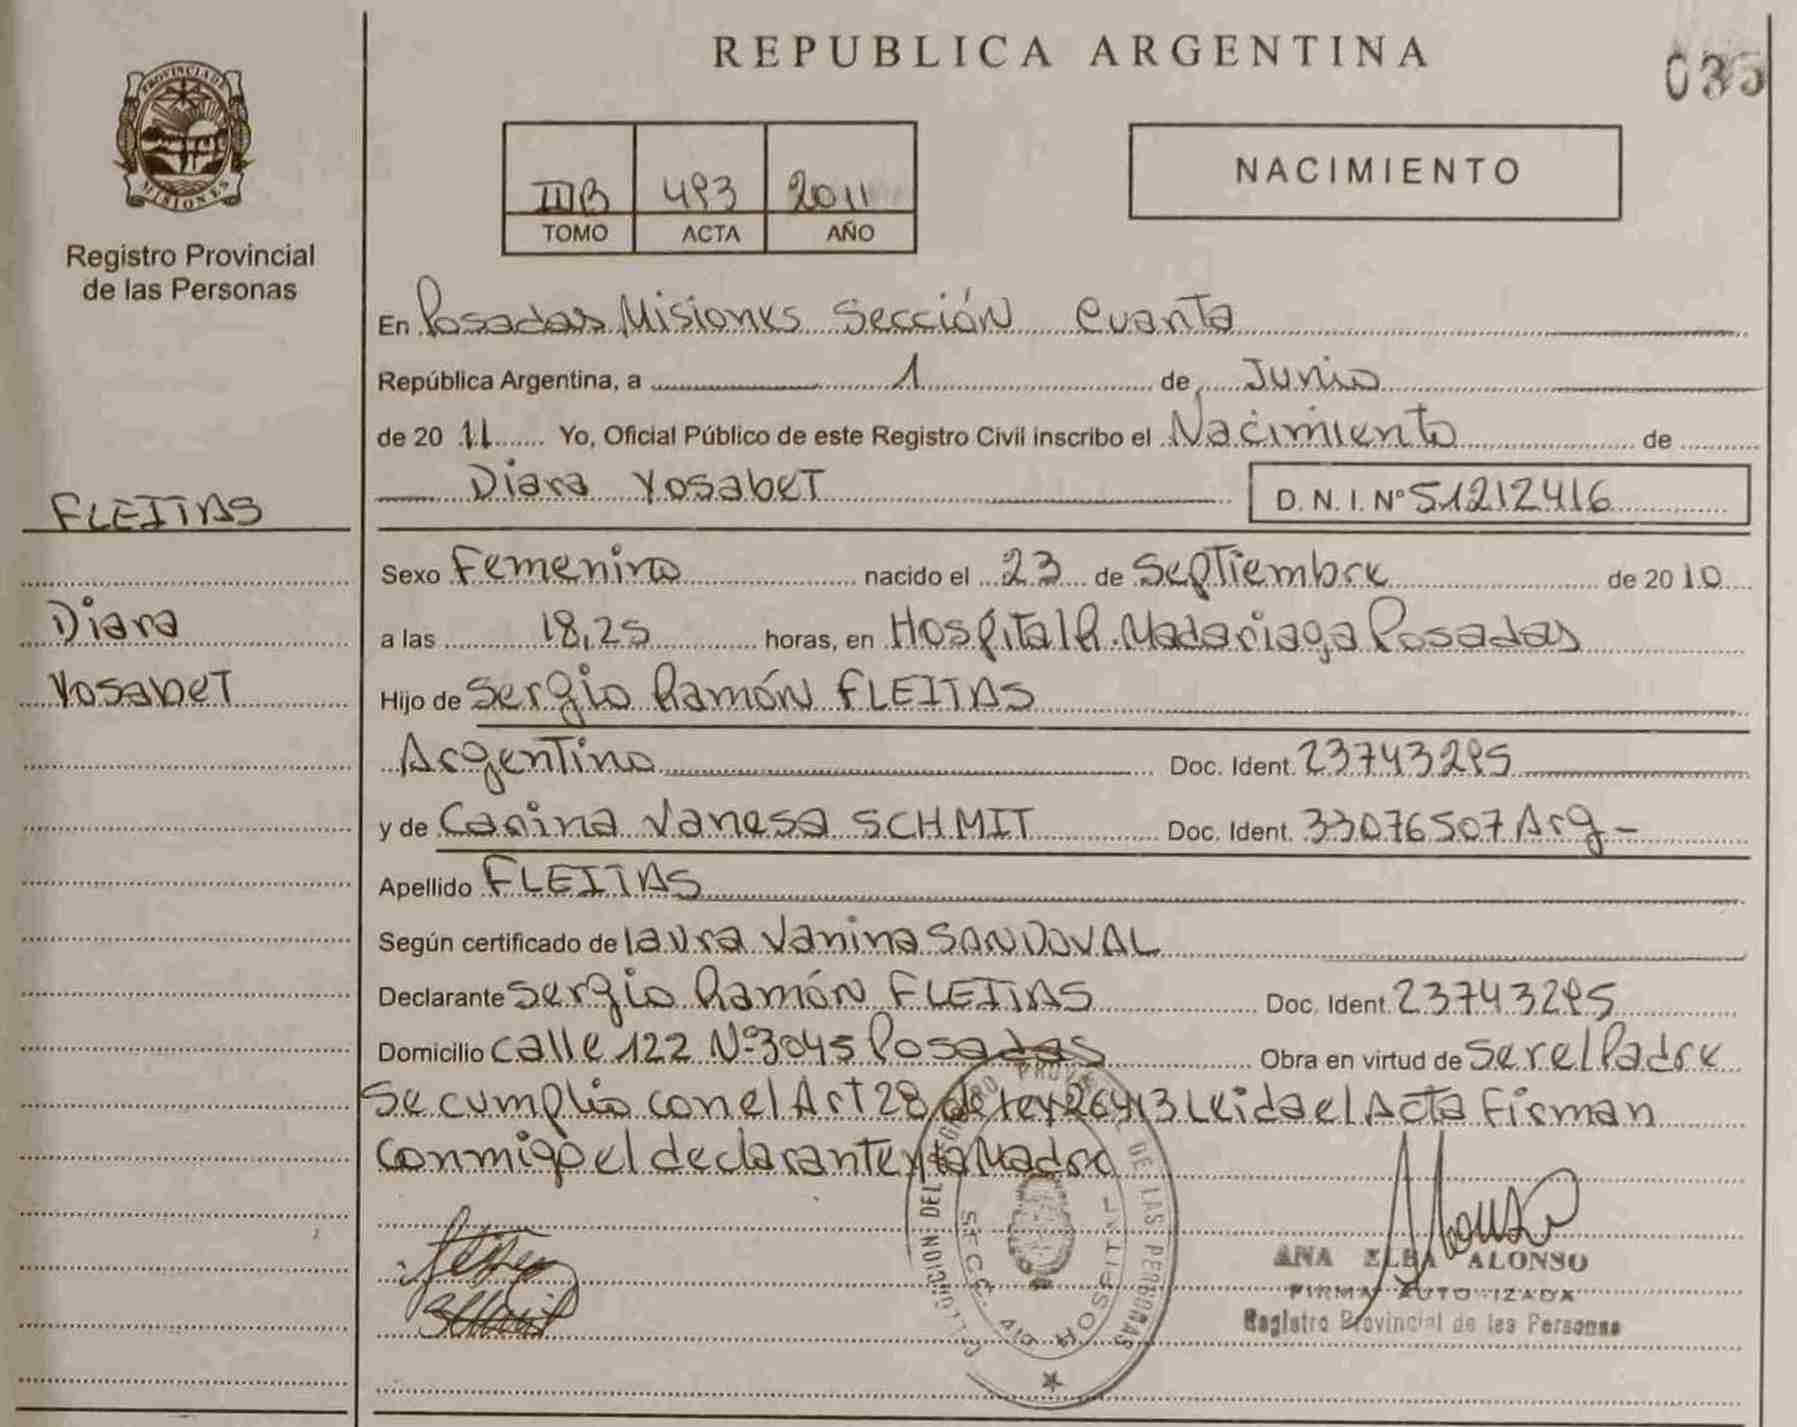 REPUBLICA ARGENTINA
035
PROVINCIA DE
MISIONES
Registro Provincial
de las Personas
IIIB 493 2011
TOMO ACTA AÑO
NACIMIENTO
En Posadas Misiones Sección Cuarta
República Argentina, a 1 de Junio
de 20 11 Yo, Oficial Público de este Registro Civil inscribo el Nacimiento de
Diara Yosabet D. N. I. Nº 51212416
FLEITAS
Diara
Yosabet
Sexo Femenino nacido el 23 de Septiembre de 20 10
a las 18,25 horas, en Hospital R. Madariaga Posadas
Hijo de Sergio Ramón FLEITAS
Argentino Doc. Ident. 23743295
y de Carina Vanesa SCHMIT Doc. Ident. 33076507 Arg-
Apellido FLEITAS
Según certificado de Laura Vanina SANDOVAL
Declarante Sergio Ramón FLEITAS Doc. Ident. 23743295
Domicilio calle 122 Nº 3045 Posadas Obra en virtud de Ser el Padre
Se cumplio con el Art 28 de Ley 26413 Leida el Acta Firman
conmigo el declarante y la Madre
DEL REGISTRO PROVINCIAL DE LAS PERSONAS
SECC. 4ta
ANA ELBA ALONSO
FIRMA AUTORIZADA
Registro Provincial de las Personas